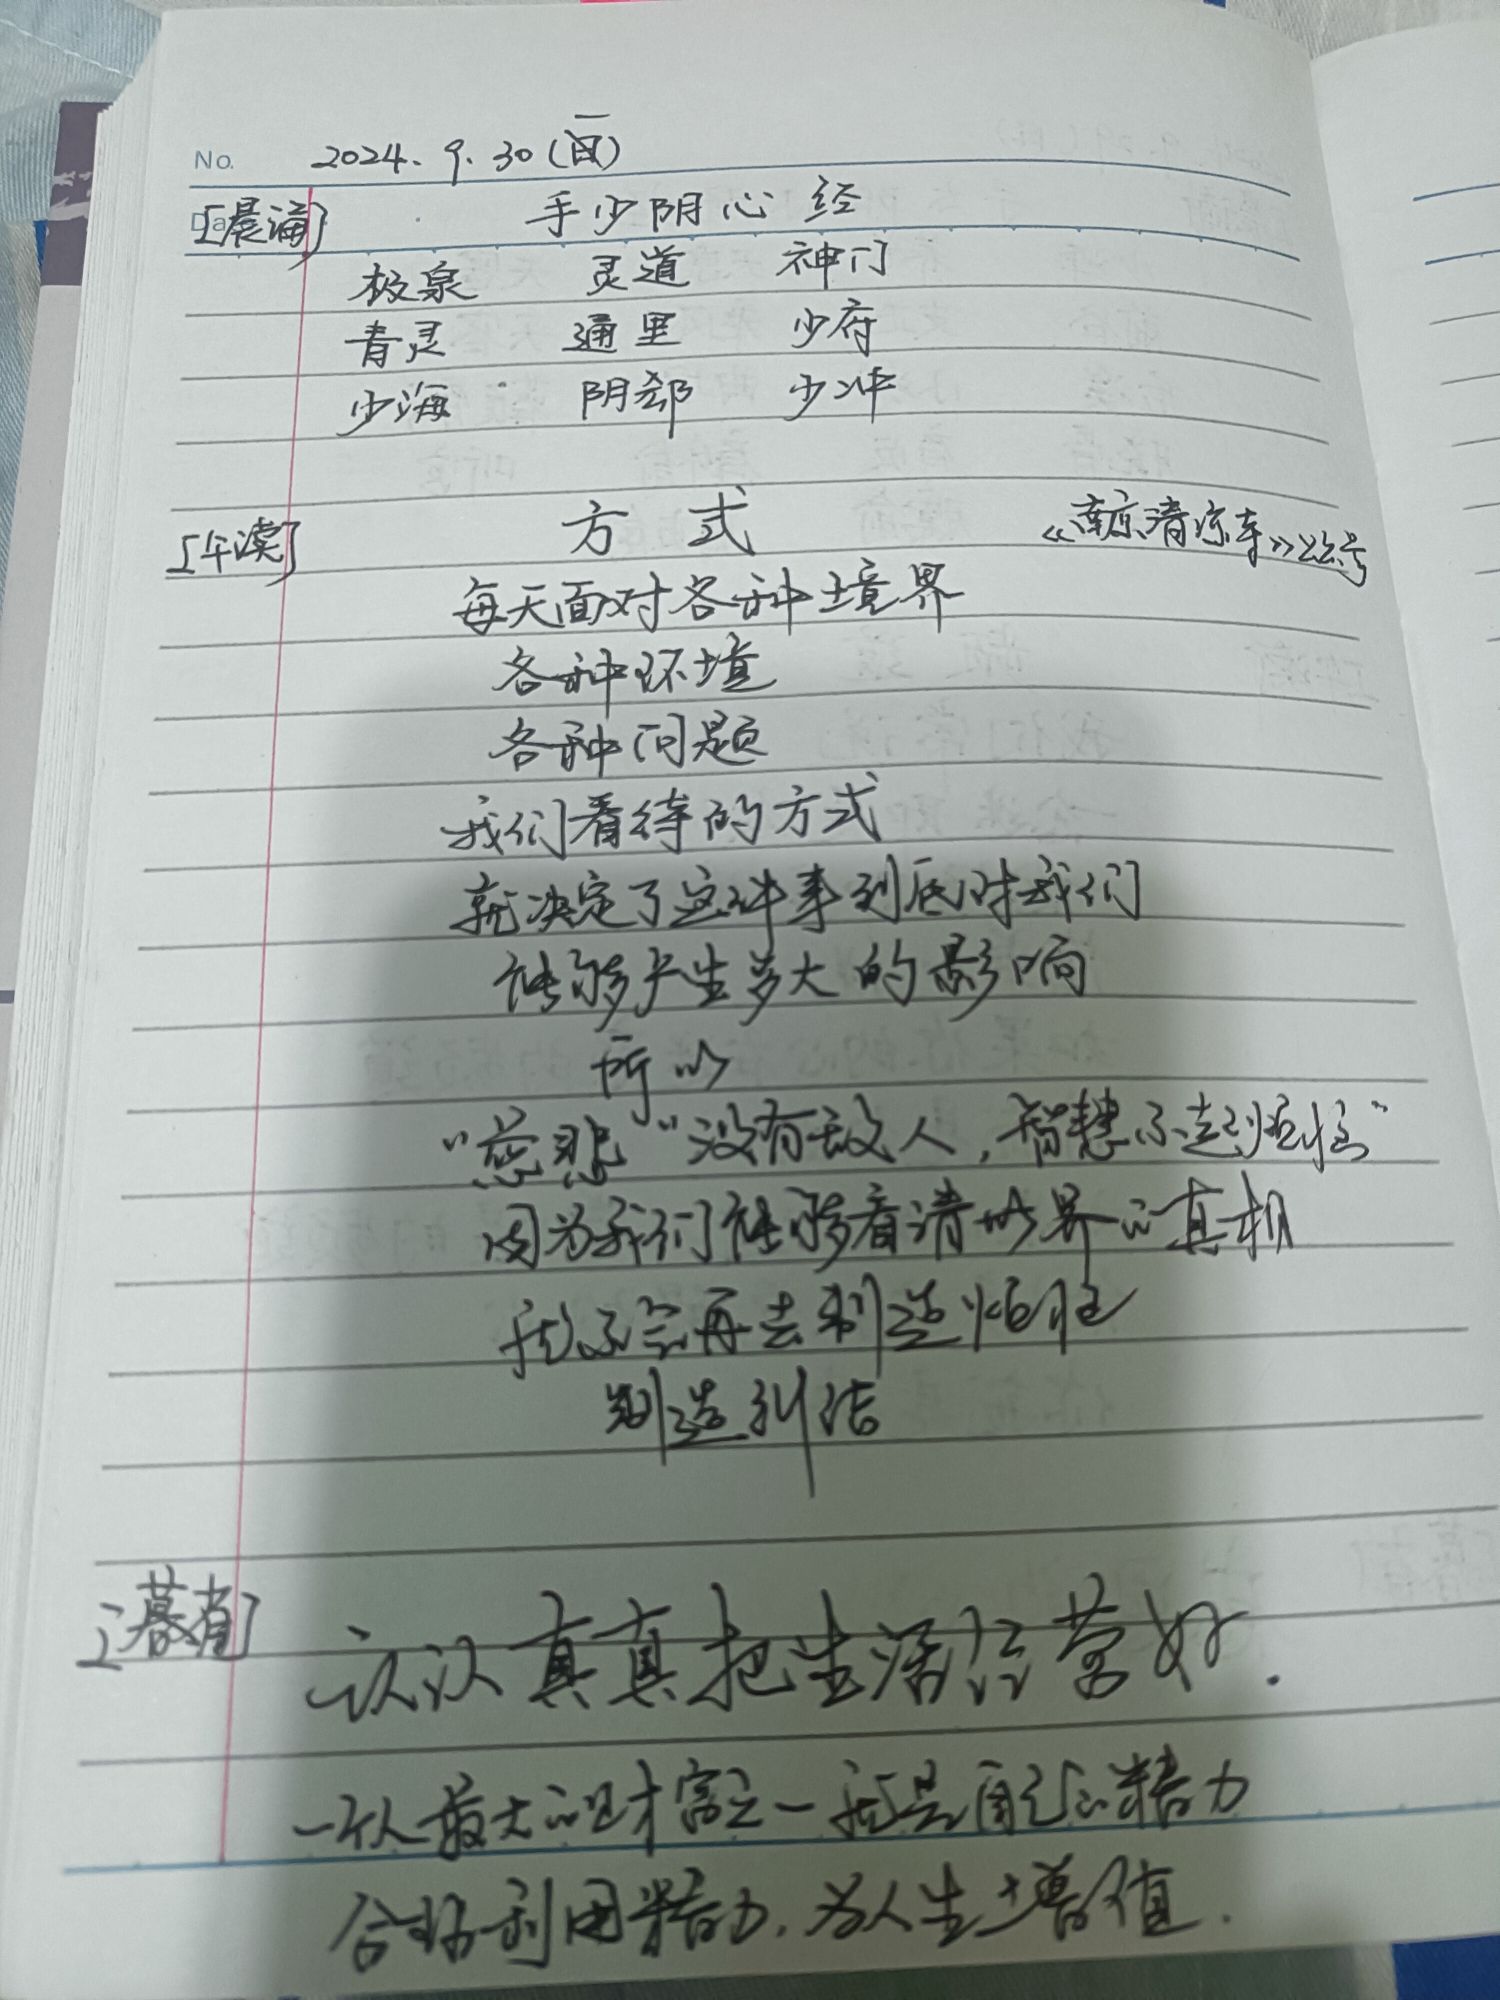 No. 2024.9.30(一)
[晨诵] 手少阴心经
极泉 灵道 神门
青灵 通里 少府
少海 阴郄 少冲
[午读] 方式 《南京清凉寺》公众号
每天面对各种境界
各种环境
各种问题
我们看待的方式
就决定了这件事到底对我们
能够产生多大的影响
所以
"慈悲"没有敌人,智慧不起烦恼"
因为我们能够看清世界的真相
就不会再去制造烦恼
制造纠结
[暮省] 认认真真把生活经营好.
一个人最大的财富之一就是自己的精力
合理利用精力,为人生增值.